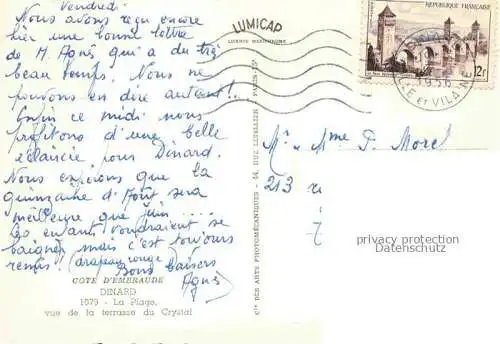 Vendredi
Nous avons reçu encore
hier une bonne lettre
de M. Agnès qui a du très
beau temps. Nous ne
pouvons en dire autant!..
Enfin ce midi nous
profitons d'une belle
éclaircie, pour Dinard.
Nous espérons que la
quinzaine d'Août sera
meilleure que juin.....
les enfants voudraient se
baigner mais c'est toujours
remis! (drapeau rouge)
Bons baisers
Agnès
COTE D'EMERAUDE
DINARD
1079 - La Plage,
vue de la terrasse du Crystal
LUMICAP
LICENCE MERTENCHROME
Cie DES ARTS PHOTOMÉCANIQUES - 44, RUE LETELLIER - PARIS-15e
REPUBLIQUE FRANÇAISE
12f
ILLE et VILAINE
Mr. Mme P. Morel
213
privacy protection
Datenschutz